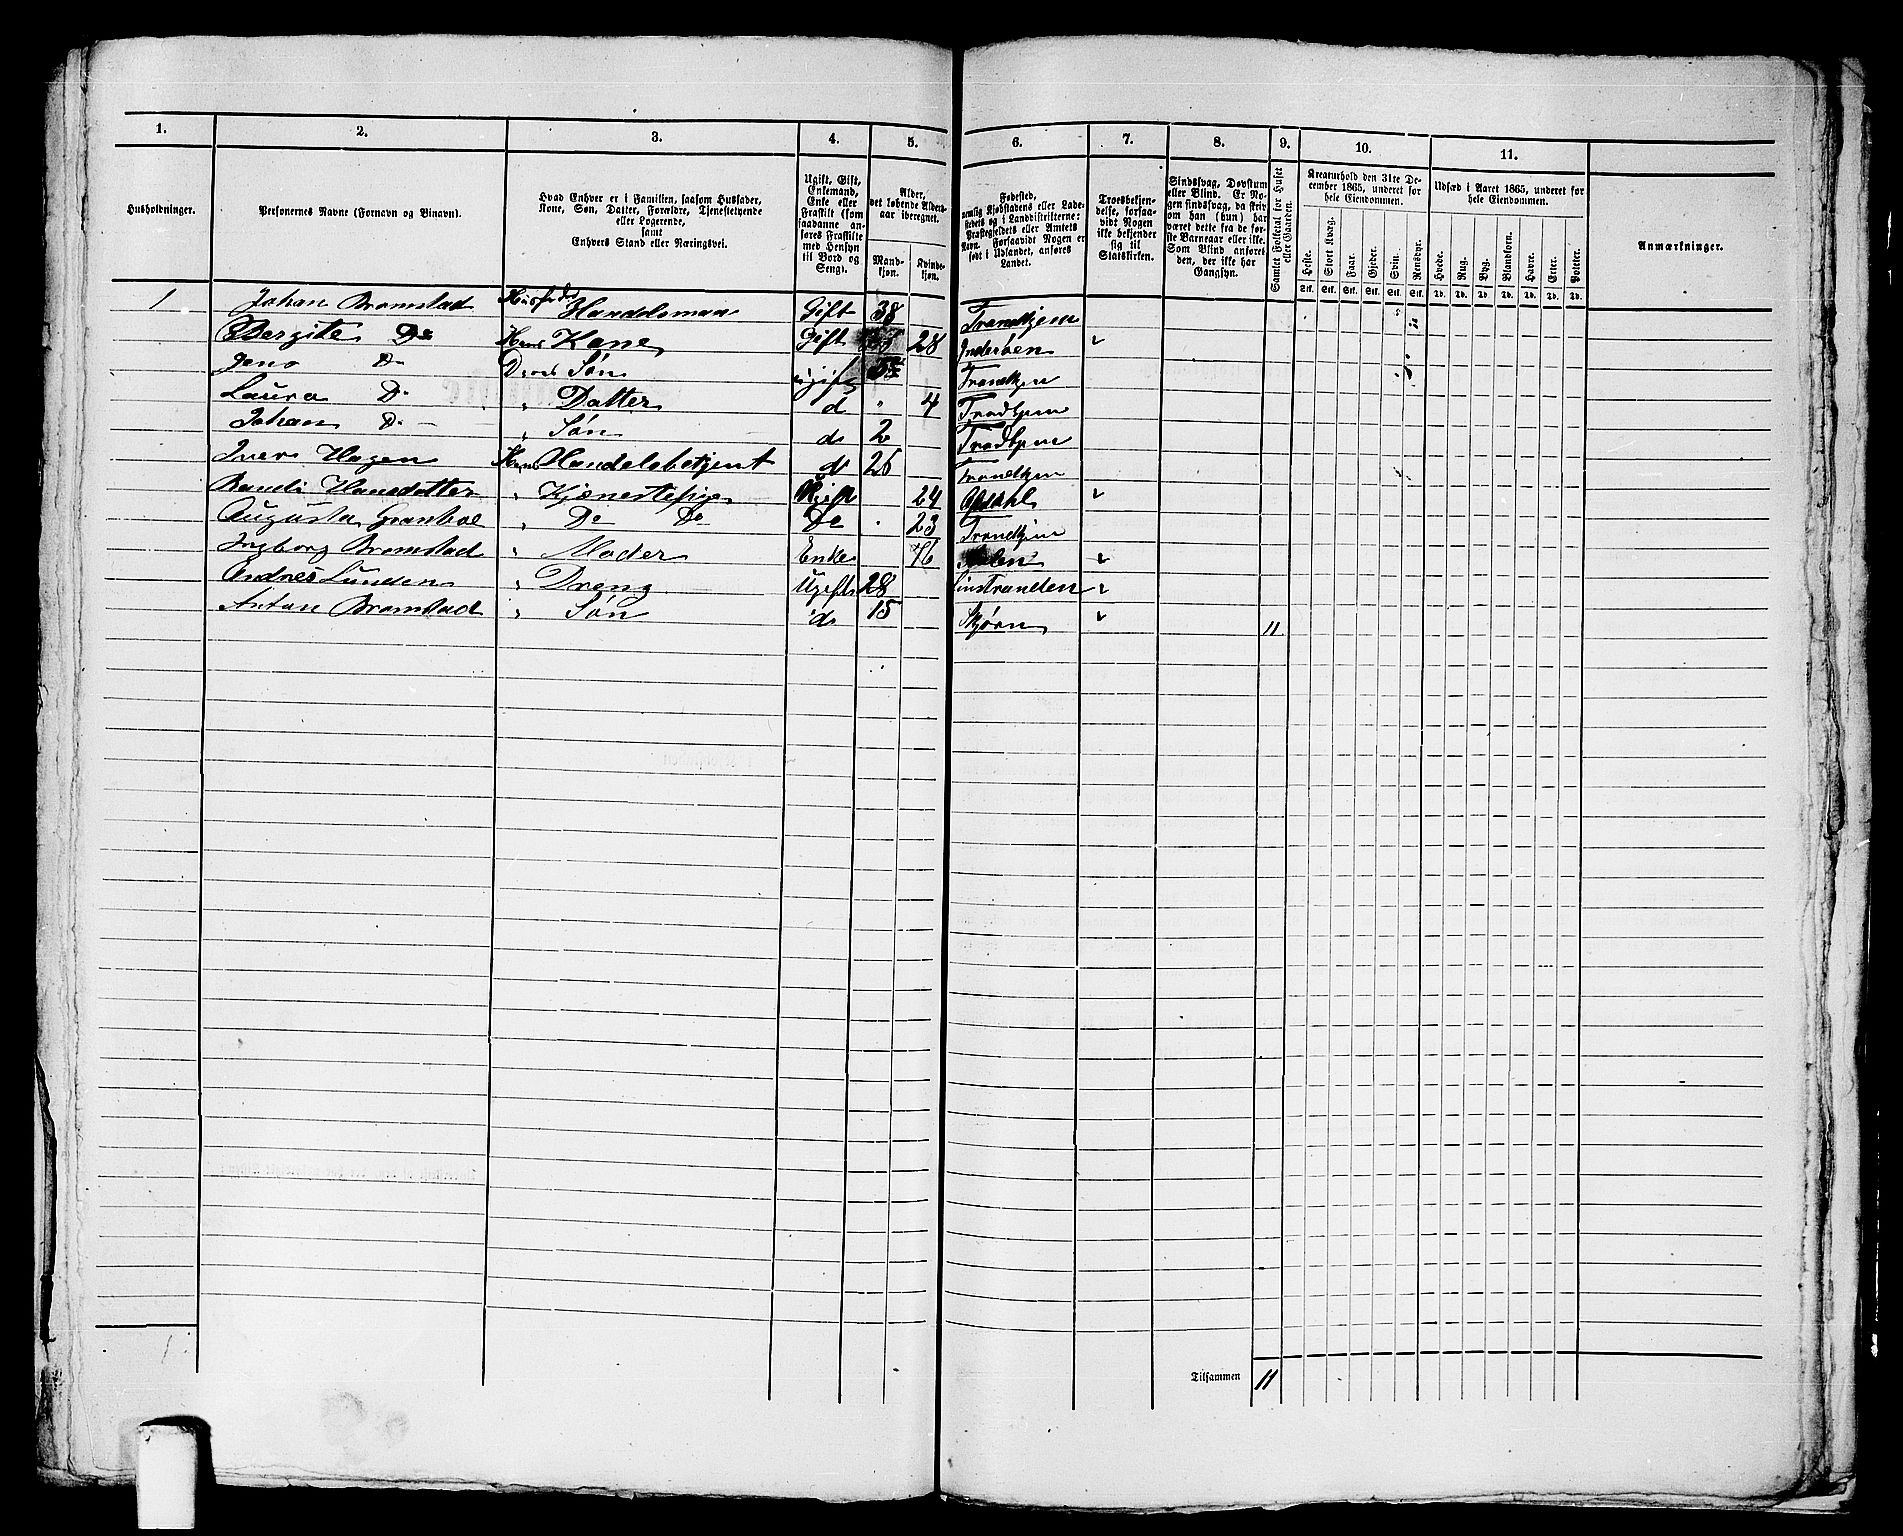 1. 2. 3. 4. 5. 6. 7. 8. 9. 10. 11.
Husholdninger.
Personernes Navne (Fornavn og Binavn).
Hvad Enhver er i Familien, saasom Husfader, Kone, Søn, Datter, Forældre, Tjenestetyende eller Logerende, samt Enhvers Stand eller Næringsvei.
Ugift, Gift, Enkemand, Enke eller Fraskilt (som saadanne anføres Fraskilte med Hensyn til Bord og Seng).
Alder, det løbende Alders-aar iberegnet.
Mandkjøn. Kvindekjøn.
Fødested, nemlig Kjøbstadens eller Ladestedets og i Landdistrikterne: Præstegjeldets eller Amtets Navn. Forsaavidt Nogen er født i Udlandet, anføres Landet.
Troesbekjendelse, forsaavidt Nogen ikke bekjender sig til Statskirken.
Sindssvag, Døvstum eller Blind. Er Nogen sindssvag, da skrives om han (hun) har været dette fra de første Barneaar eller ikke. Som Blind anføres den, der ikke har Gangsyn.
Samlet Folketal for Huset eller Gaarden.
Kreaturhold den 31te December 1865, underet for hele Eiendommen.
Heste. Stort Kvæg. Faar. Gjeder. Svin. Rensdyr.
Stk. Stk. Stk. Stk. Stk. Stk.
Udsæd i Aaret 1865, underet for hele Eiendommen.
Hvede. Rug. Byg. Blandkorn. Havre. Erter. Poteter.
Td. Td. Td. Td. Td. Td. Td.
Anmærkninger.
1 Johan Bromstad Husfader Handelsman Gift 38 Trondhjem
Bergite Do Hans Kone Gift 28 Inderøen
Jens Do Deres Søn ugift Trondhjem
Laura Do " Datter d " 4 Trondhjem
Johan Do " Søn do 2 Trondhjem
Iver Hagen Hans Handelsbetjent do 26 Trondhjem
Randi Hansdatter " Tjenestepige Ugift 24 Opdahl
Augusta " Do Do Do 23 Trondhjem
Ingborg Bromstad " Moder Enke 76
Andres Lunden " Dreng Ugift 28
Anton Bromstad " Søn do 15 Skjørn 11
1
Tilsammen 11